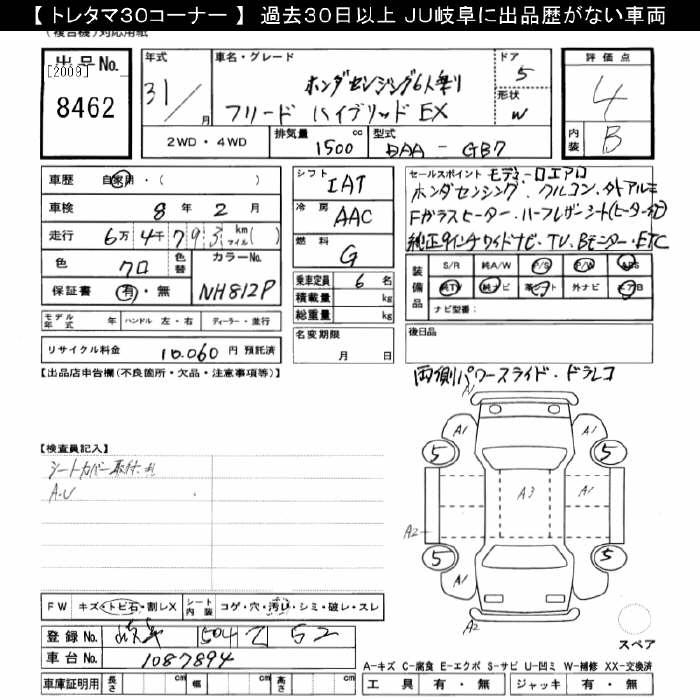 【 トレタマ３０コーナー 】 過去３０日以上 ＪＵ岐阜に出品歴がない車両
(複合機)対応用紙
出品No.
[2009]
8462
年式
31/
月
車名・グレード
ホンダセンシング6人乗り
フリード ハイブリッド EX
ドア
5
形状
W
評価点
4
内装
B
2WD・4WD
排気量
1500
cc
型式
DAA - GB7
車歴
自家用・( )
車検
8 年 2 月
走行
6万4千793 km マイル( )
色
クロ
色替
カラーNo.
NH812P
保証書
有・無
モデル年式
年
ハンドル 左・右
ディーラー・並行
リサイクル料金
10,060 円 預託済
シフト
IAT
冷房
AAC
燃料
G
乗車定員
6 名
積載量
kg
総重量
kg
名変期限
月 日
セールスポイント モデューロエアロ
ホンダセンシング、クルコン、外アルミ
Fガラスヒーター・ハーフレザーシート(ヒーター付)
純正9インチワイドナビ・TV、Bモニター・ETC
装備品
S/R
純A/W
P/S
P/W
ABS
純TV
純ナビ
革シート
外ナビ
エアB
ナビ型番：
後日品
両側パワースライド・ドラレコ
【出品店申告欄(不良箇所・欠品・注意事項等)】
【検査員記入】
シートカバー取付,札
A.U
A1
A1
A1
5
5
A3
A1
A2
5
5
A1
A2
スペア
FW
キズ・トビ石・割レX
シート内装
コゲ・穴・汚レ・シミ・破レ・スレ
登録No.
岐阜 504 て 52
車台No.
1087894
車庫証明用
長さ
cm
幅
cm
高さ
cm
A-キズ C-腐食 E-エクボ S-サビ U-凹ミ W-補修 XX-交換済
工具
有・無
ジャッキ
有・無